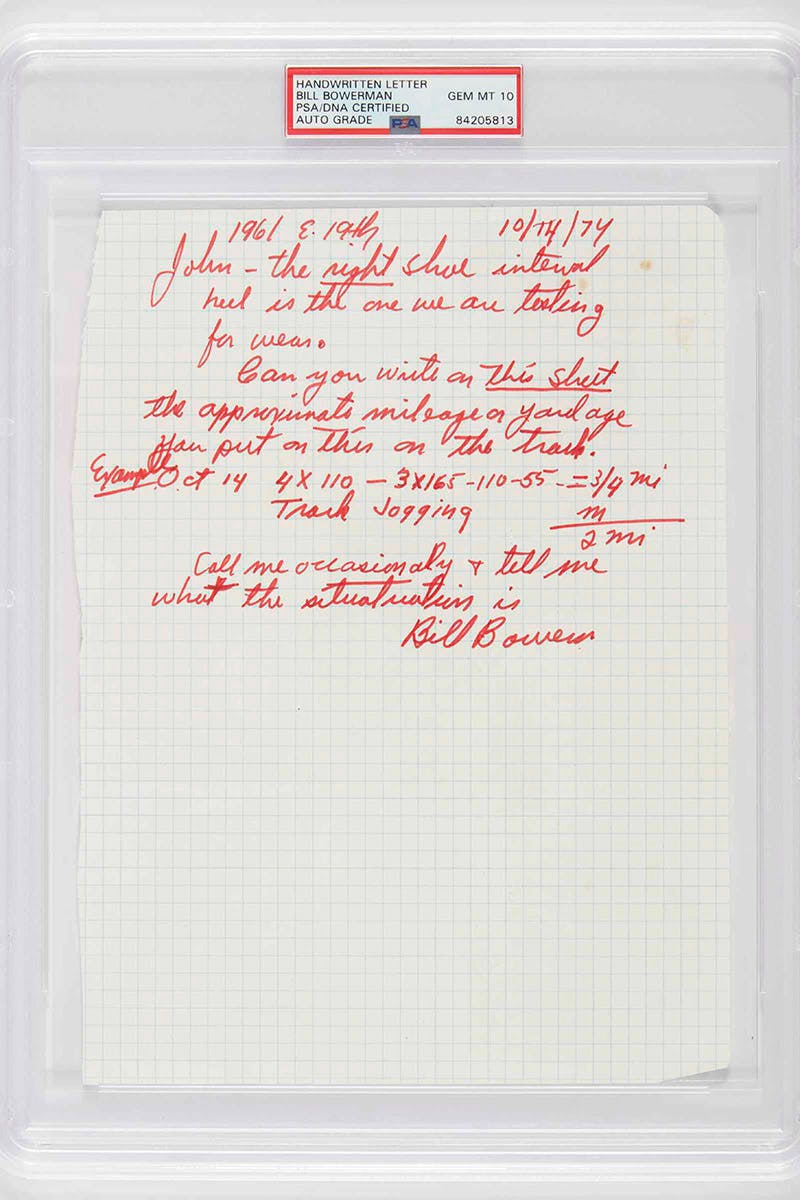 HANDWRITTEN LETTER
BILL BOWERMAN
PSA/DNA CERTIFIED
AUTO GRADE PSA
GEM MT 10
84205813
1961 E. 19th 10/14/74
John - the right shoe
heel is the one we are testing
for wear.
Can you write on this sheet
the approximate mileage or yardage
you put on this on the track.
Example Oct 14 4 X 110 - 3X165-110-55 - = 3/4 mi
Track Jogging m
2 mi
Call me occasionaly & tell me
what the situatuation is
Bill Bowerm